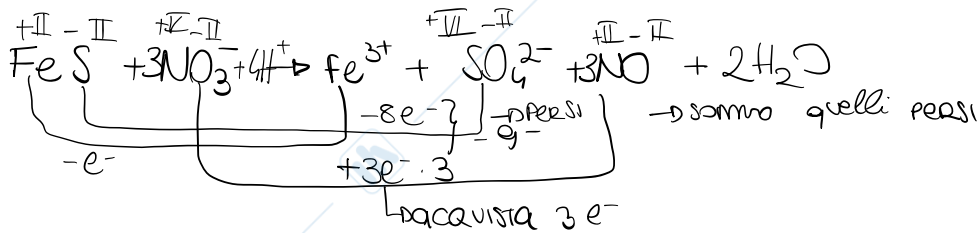 +II -II +V -II +VI -II +II -II
FeS + 3NO₃⁻ + 4H⁺ → Fe³⁺ + SO₄²⁻ + 3NO + 2H₂O
-8e⁻ } → PERSI → SOMMO quelli PERSI
-e⁻ - 9⁻
+3e⁻ · 3
→ ACQUISTA 3 e⁻